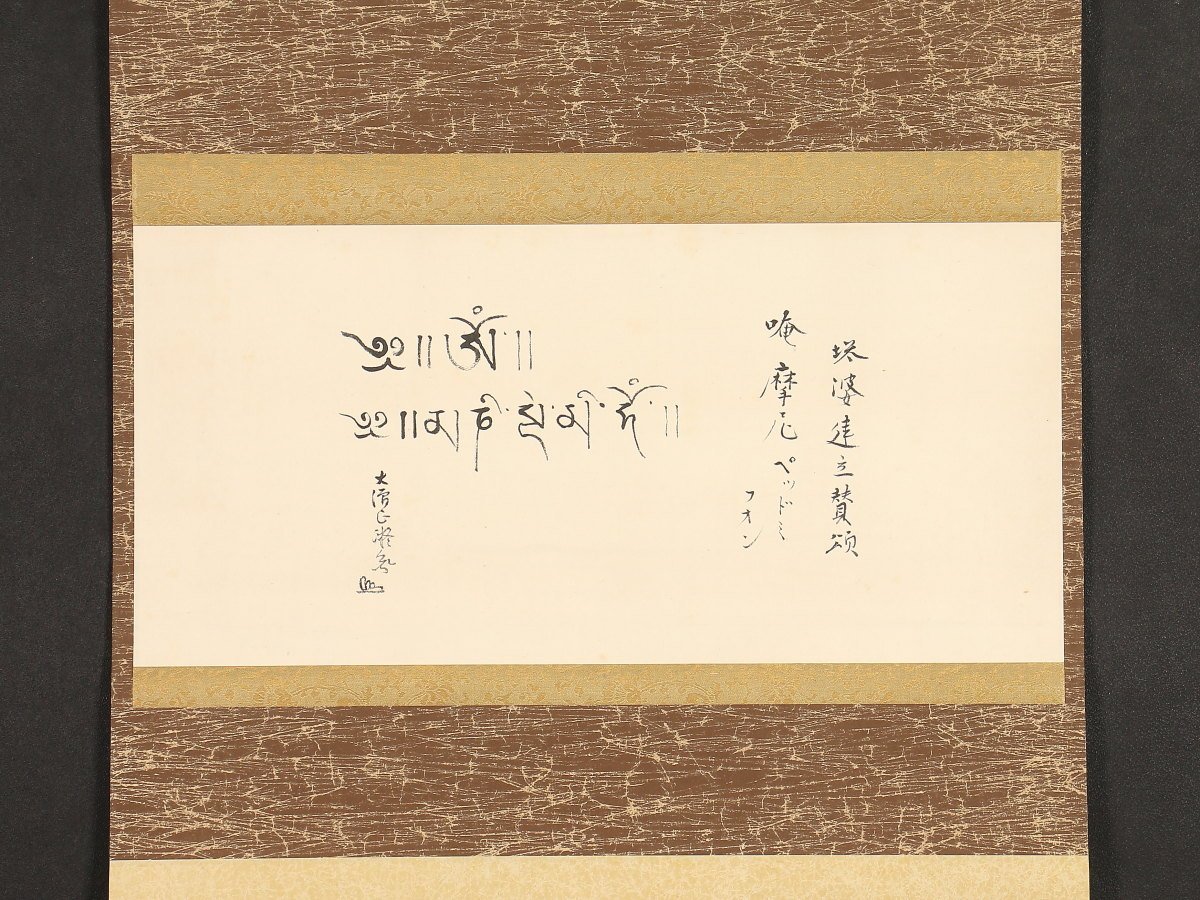 塔婆建立賛頌
唵摩尼ペッドミ
フオン
༄༅།།ཨོཾ་།།
༄༅།།མ ཎི་ མི་ ཧཱུྃ་།།
大僧正